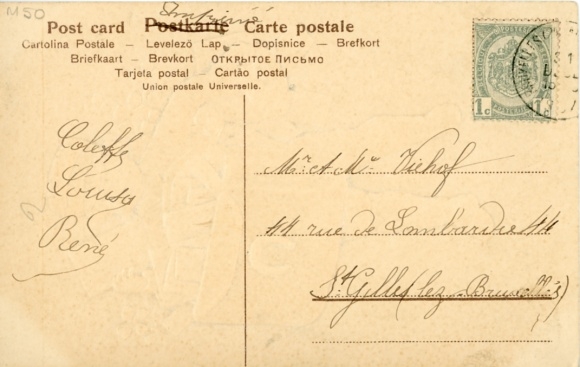 M50
Imprimé
Post card Postkarte Carte postale
Cartolina Postale – Levelező Lap – Dopisnice – Brefkort
Briefkaart – Brevkort – ОТКРЫТОЕ ПИСЬМО
Tarjeta postal – Cartão postal
Union postale Universelle.
1c 1c
BRUXELLES
Louisa
René
2
Mr & Me Viehof
44 rue de Lombardie 44
St Gilles (lez-Bruxelles)